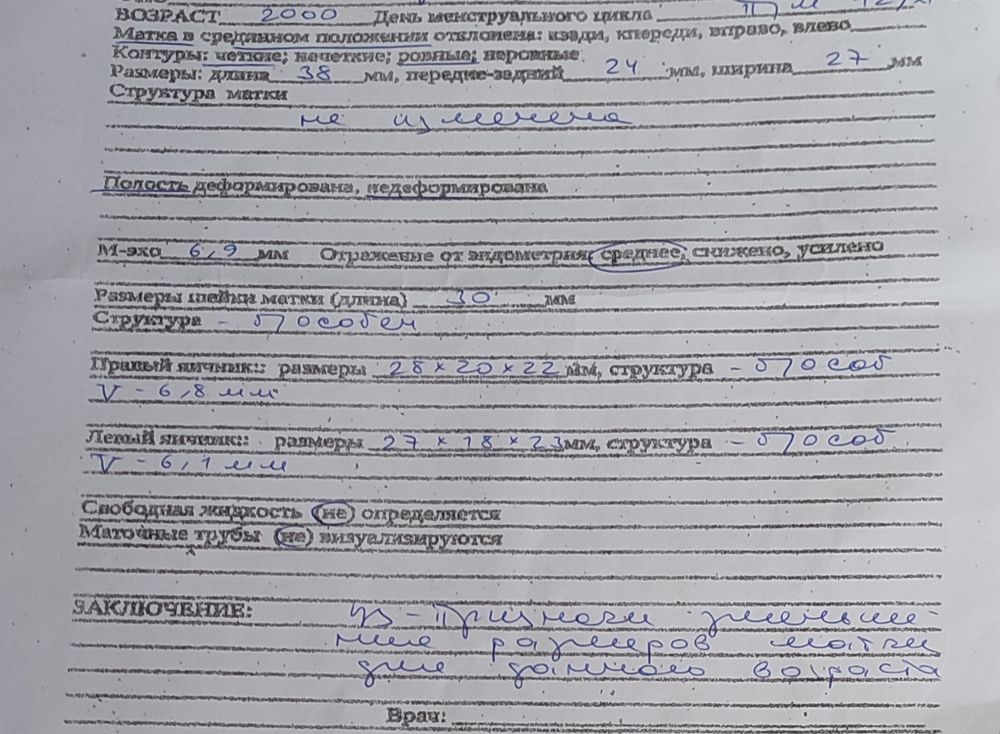 ВОЗРАСТ 2000 День менструального цикла
Матка в срединном положении отклонена: кзади, кпереди, вправо, влево
Контуры: четкие; нечеткие; ровные; неровные
Размеры: длина 38 мм, передне-задний 24 мм, ширина 27 мм
Структура матки
не изменена
Полость деформирована, недеформирована
М-эхо 6,9 мм Отражение от эндометрия: среднее, снижено, усилено
Размеры шейки матки (длина) 30 мм
Структура - б/особен
Правый яичник:: размеры 28 × 20 × 22 мм, структура - б/особ
V - 6,8 мм
Левый яичник:: размеры 27 × 18 × 23 мм, структура - б/особ
V - 6,1 мм
Свободная жидкость (не) определяется
Маточные трубы (не) визуализируются
ЗАКЛЮЧЕНИЕ: Уз-признаки уменьше-
ния размеров матки
для данного возраста
Врач: